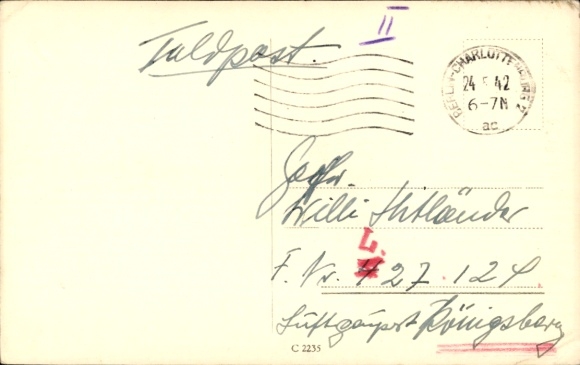 II
Feldpost.
BERLIN-CHARLOTTENBURG 2
24 5 42
6-7N
ac
Gefr.
Willi
L.
F. Nr. 27124
Luftgaupost Königsberg
C 2235